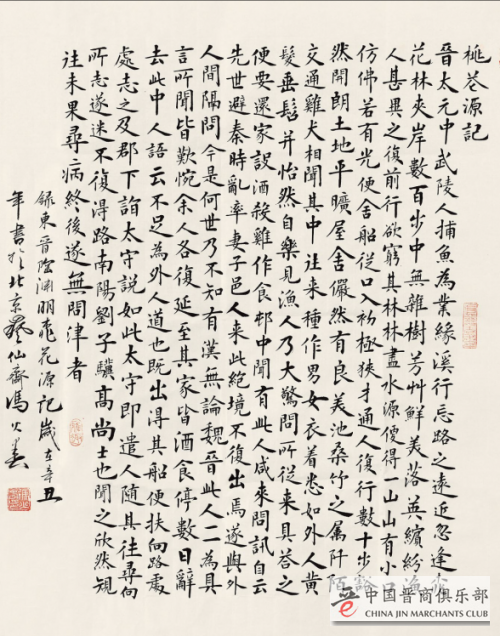 桃花源記
晉太元中武陵人捕魚為業緣溪行忘路之遠近忽逢桃
花林夾岸數百步中無雜樹芳艸鮮美落英繽紛漁
人甚異之復前行欲窮其林林盡水源便得一山山有小口
仿佛若有光便舍船從口入初極狹才通人復行數十步豁
然開朗土地平曠屋舍儼然有良美池桑竹之属阡陌
交通雞犬相聞其中往来種作男女衣着悉如外人黄
髮垂髫并怡然自樂見漁人乃大驚問所從来具答之
便要還家設酒殺雞作食邨中聞有此人咸来問訊自云
先世避秦時亂率妻子邑人来此絶境不復出焉遂與外
人間隔問今是何世乃不知有漢無論魏晉此人一二為具
言所聞皆歎惋余人各復延至其家皆酒食停數日辭
去此中人語云不足為外人道也既出得其船便扶向路處
處志之及郡下詣太守説如此太守即遣人随其往尋向
所志遂迷不復得路南陽劉子驥高尚士也聞之欣然規
往未果尋病終後遂無問津者
錄東晉陶淵明桃花源記歲在辛丑
年書於北京仙齋馮
中国晋商俱乐部
CHINA JIN MERCHANTS CLUB